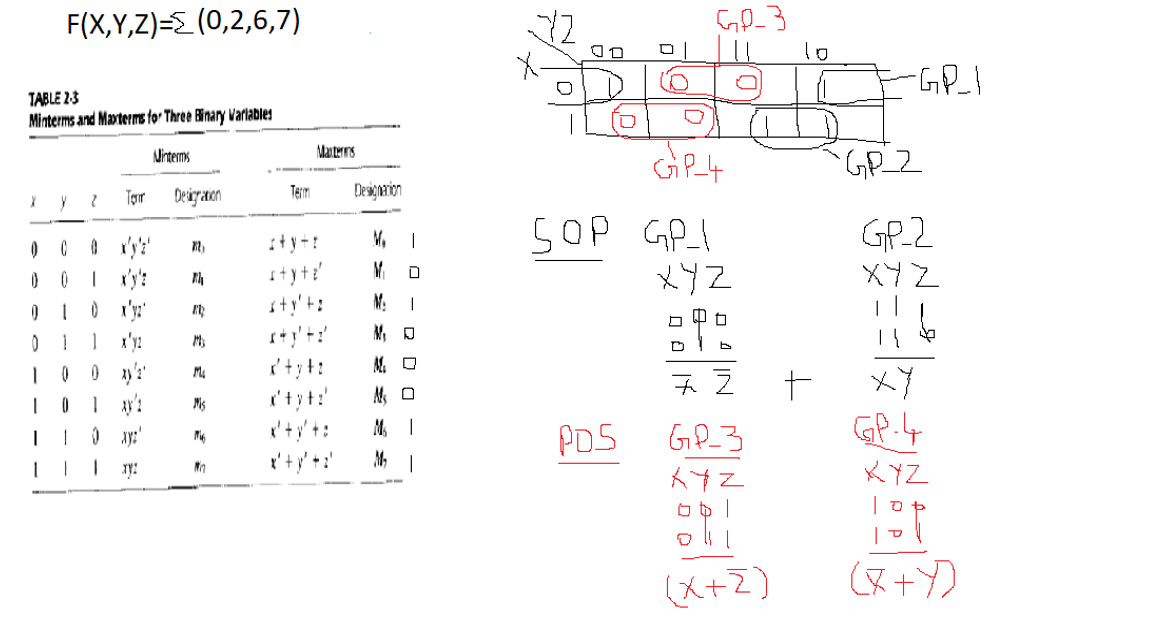 F(X,Y,Z)=Σ(0,2,6,7)
TABLE 2-3
Minterms and Maxterms for Three Binary Variables
Minterms Maxterms
x y z Term Designation Term Designation
0 0 0 x'y'z' m₀ x+y+z M₀ 1
0 0 1 x'y'z m₁ x+y+z' M₁ 0
0 1 0 x'yz' m₂ x+y'+z M₂ 1
0 1 1 x'yz m₃ x+y'+z' M₃ 0
1 0 0 xy'z' m₄ x'+y+z M₄ 0
1 0 1 xy'z m₅ x'+y+z' M₅ 0
1 1 0 xyz' m₆ x'+y'+z M₆ 1
1 1 1 xyz m₇ x'+y'+z' M₇ 1
YZ GP_3
X 00 01 11 10
0 1 0 0 GP_1
1 0 0 1 1
GP_4 GP_2
SOP GP_1 GP_2
XYZ XYZ
000 111
010 110
X̅ Z̅ + XY
POS GP_3 GP_4
XYZ XYZ
001 100
011 101
(X+Z̅) (X̅+Y)